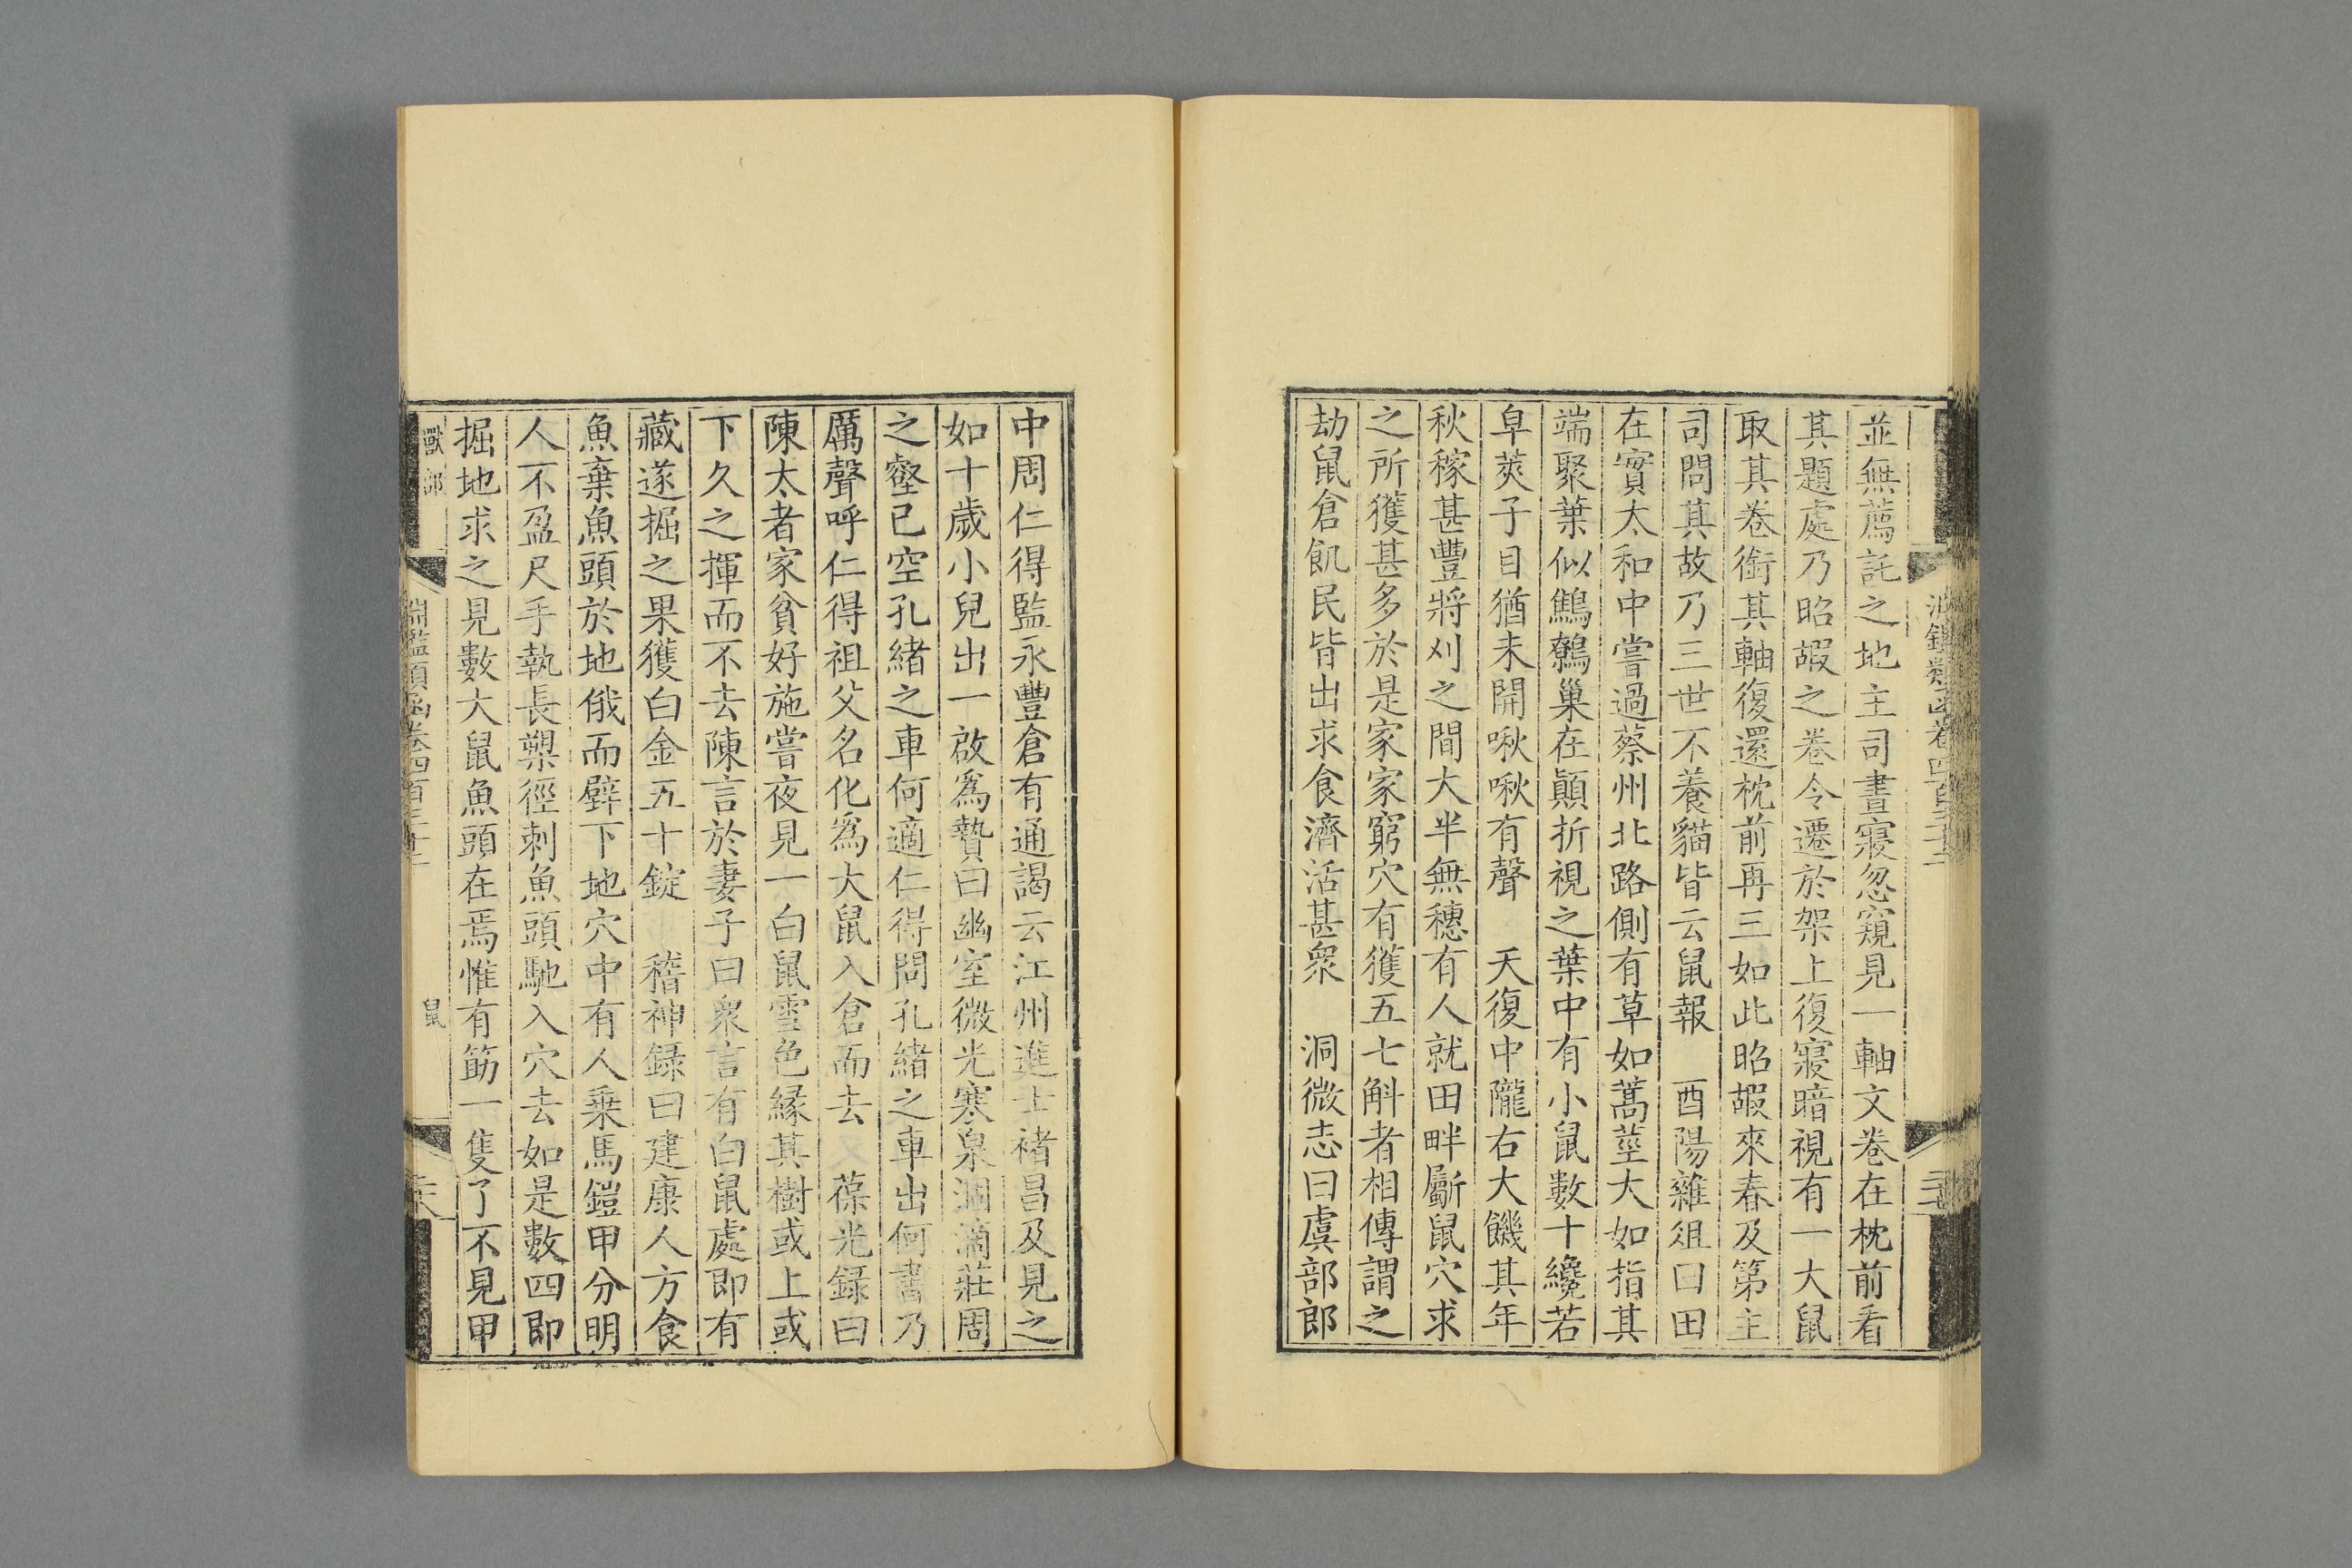 並無薦託之地主司晝寢忽窺見一軸文卷在枕前看
其題處乃昭嘏之卷令遷於架上復寢暗視有一大鼠
取其卷銜其軸復還枕前再三如此昭嘏來春及第主
司問其故乃三世不養貓皆云鼠報　酉陽雜俎曰田
在實太和中嘗過蔡州北路側有草如蒿莖大如指其
端聚葉似鷦鷯巢在顚折視之葉中有小鼠數十纔若
皁莢子目猶未開啾啾有聲　天復中隴右大饑其年
秋稼甚豐將刈之間大半無穗有人就田畔斸鼠穴求
之所獲甚多於是家家窮穴有獲五七斛者相傳謂之
劫鼠倉飢民皆出求食濟活甚衆　洞微志曰虞部郎
中周仁得監永豐倉有通謁云江州進士褚昌及見之
如十歲小兒出一啟爲贄曰幽室微光寒泉涸滴莊周
之壑已空孔緒之車何適仁得問孔緒之車出何書乃
厲聲呼仁得祖父名化爲大鼠入倉而去　又葆光録曰
陳太者家貧好施嘗夜見一白鼠雪色緣其樹或上或
下久之揮而不去陳言於妻子曰衆言有白鼠處即有
藏遂掘之果獲白金五十錠　稽神録曰建康人方食
魚棄魚頭於地俄而壁下地穴中有人乘馬鎧甲分明
人不盈尺手執長槊徑刺魚頭馳入穴去如是數四即
掘地求之見數大鼠魚頭在焉惟有筯一隻了不見甲
獸部
淵鑑類函卷四百三十二
鼠